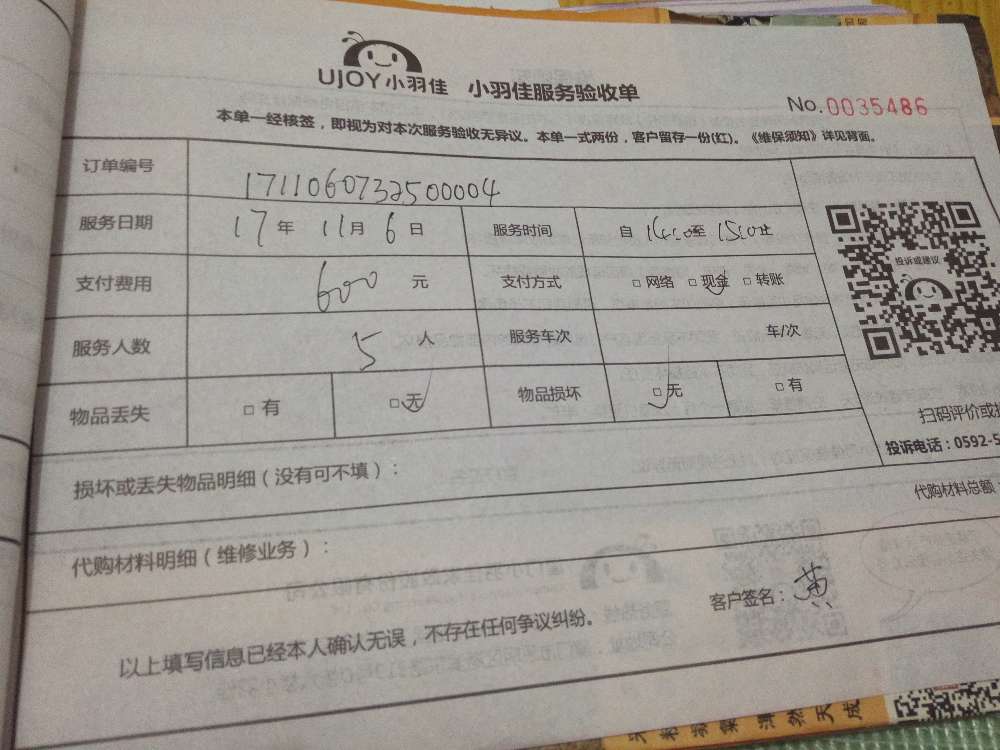 UJOY小羽佳 小羽佳服务验收单
No.0035486
本单一经核签，即视为对本次服务验收无异议。本单一式两份，客户留存一份(红)。《维保须知》详见背面。
订单编号 1711060732500004
服务日期 17年 11月 6日 服务时间 自 14:20至 15:20止
支付费用 600 元 支付方式 □网络 □现金 □转账
服务人数 5 人 服务车次 车/次
物品丢失 □有 □无 物品损坏 □无 □有
投诉或建议
扫码评价或
投诉电话：0592-5
损坏或丢失物品明细（没有可不填）：
代购材料总额：
代购材料明细（维修业务）：
客户签名：黄
以上填写信息已经本人确认无误，不存在任何争议纠纷。